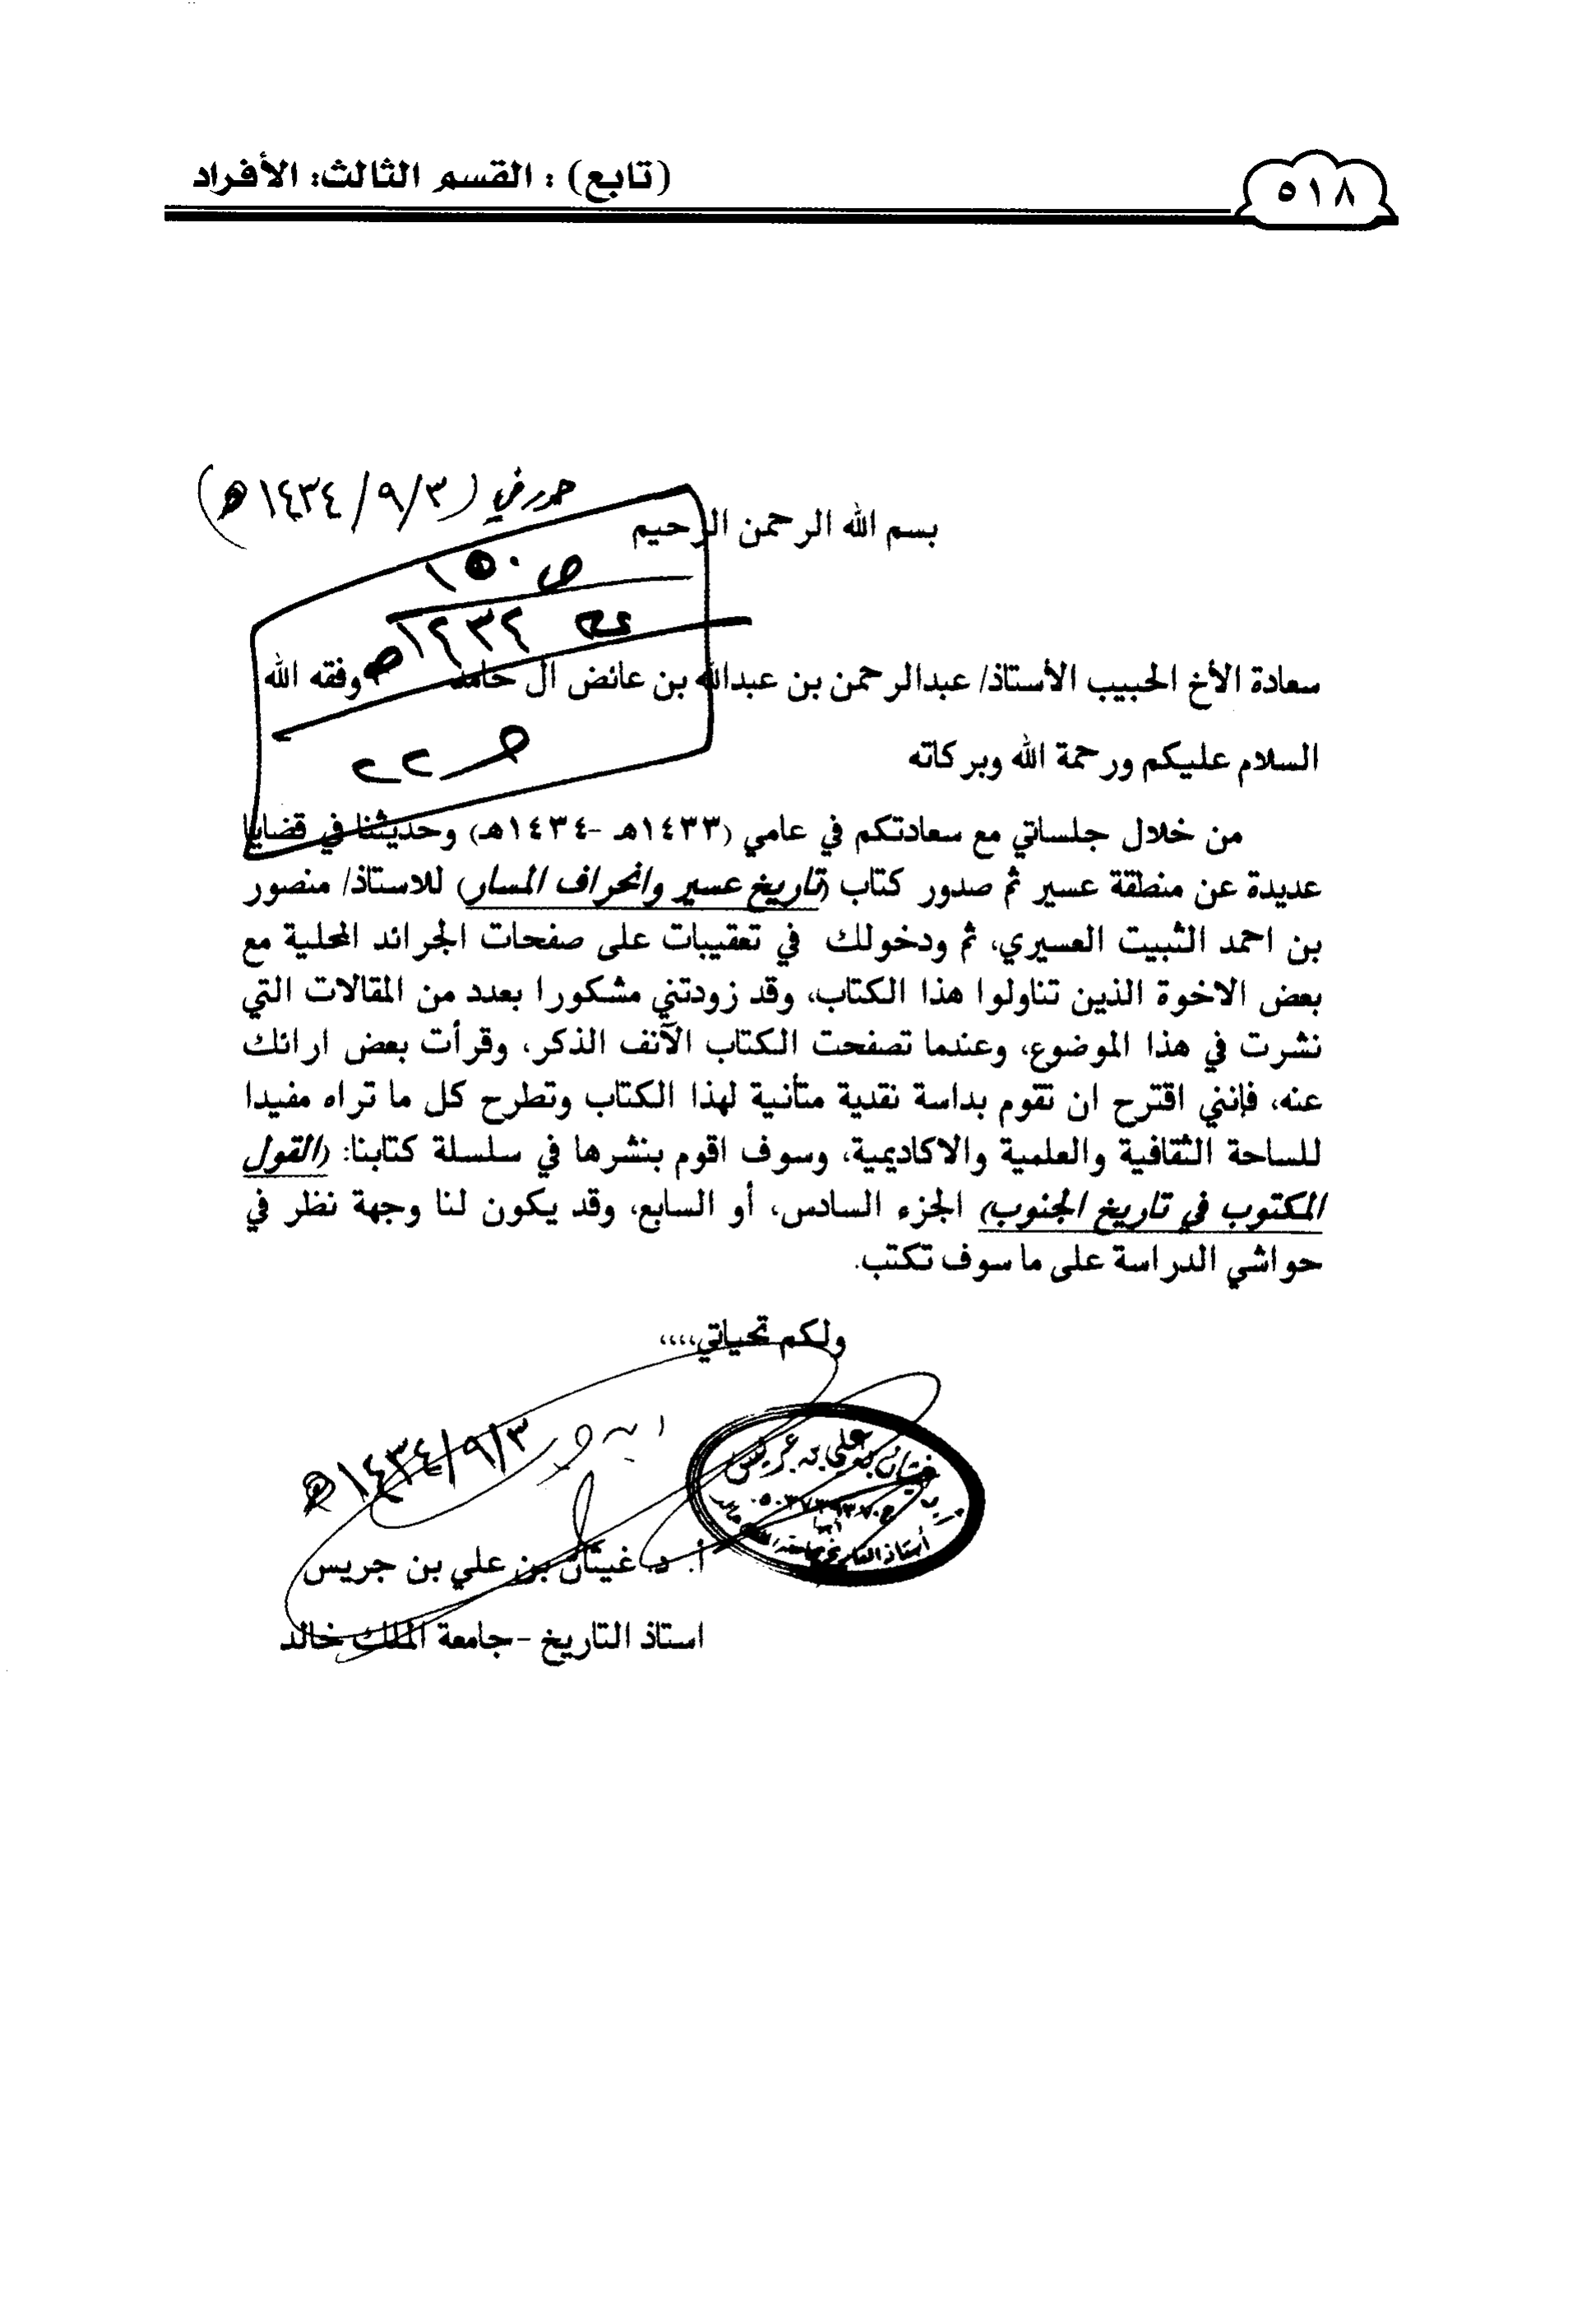 (تابع) : القسم الثالث: الأفراد
٥١٨
(١٤٣٤/٩/٣هـ)
بسم الله الرحمن الرحيم
ص ١٥٠
سعادة الأخ الحبيب الأستاذ/ عبدالرحمن بن عبدالله بن عائض ال حامد وفقه الله
السلام عليكم ورحمة الله وبركاته
من خلال جلساتي مع سعادتكم في عامي (١٤٣٣هـ -١٤٣٤هـ) وحديثنا في قضايا
عديدة عن منطقة عسير ثم صدور كتاب (تاريخ عسير وانحراف المسار) للاستاذ/ منصور
بن احمد الثبيت العسيري، ثم ودخولك في تعقيبات على صفحات الجرائد المحلية مع
بعض الاخوة الذين تناولوا هذا الكتاب، وقد زودتني مشكورا بعدد من المقالات التي
نشرت في هذا الموضوع، وعندما تصفحت الكتاب الآنف الذكر، وقرأت بعض ارائك
عنه، فإنني اقترح ان تقوم بداسة نقدية متأنية لهذا الكتاب وتطرح كل ما تراه مفيدا
للساحة الثقافية والعلمية والاكاديمية، وسوف اقوم بنشرها في سلسلة كتابنا: (القول
المكتوب في تاريخ الجنوب) الجزء السادس، أو السابع، وقد يكون لنا وجهة نظر في
حواشي الدراسة على ما سوف تكتب.
ولكم تحياتي،،،،
١٤٣٤/٩/٣هـ
أ. د. غيثان بن علي بن جريس
استاذ التاريخ -جامعة الملك خالد